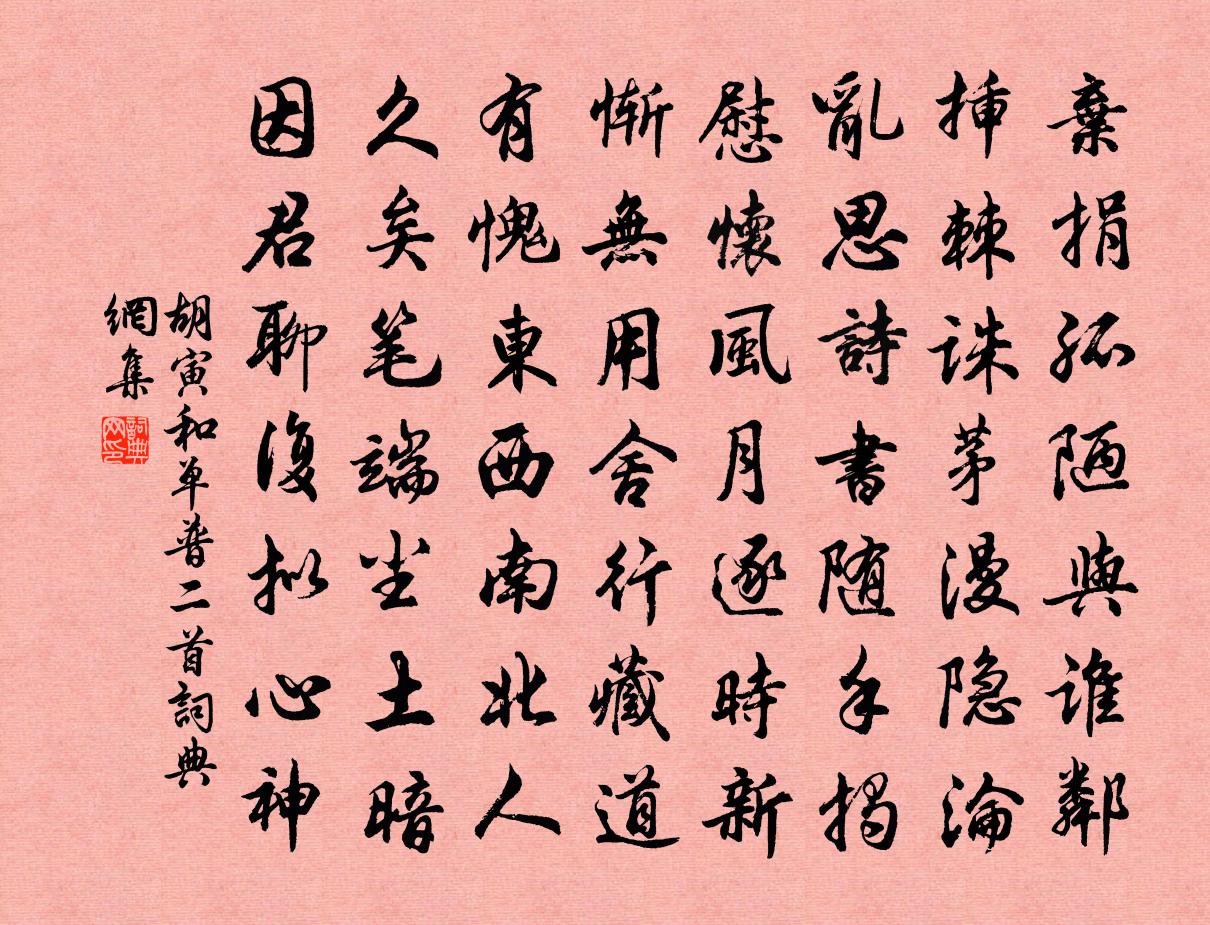 棄捐孤陋與誰鄰
挿棘誅茅漫隐淪
亂思詩書随手揭
慰懷風月逐時新
慚無用舍行藏道
有愧東西南北人
久矣笔端尘土暗
因君聊復拟心神
胡寅和单普二首詞典
網集
詞典网印